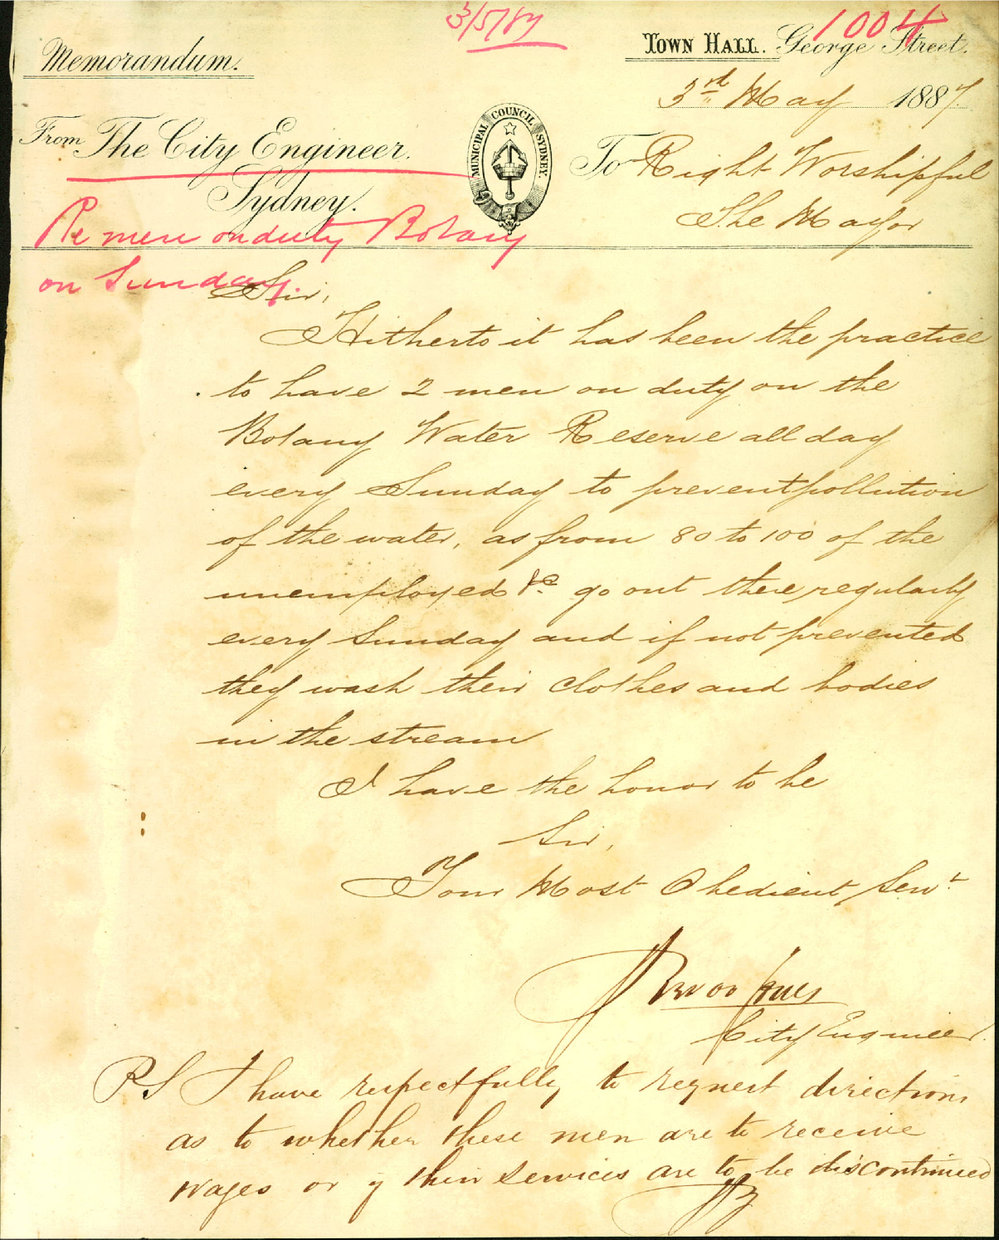 3/5/87
1004
Memorandum.
Town Hall. George Street.
3rd May 1887.
From The City Engineer.
Sydney.
MUNICIPAL COUNCIL SYDNEY
To Right Worshipful
The Mayor
Re men on duty Botany
on Sunday.
Sir,
Hitherto it has been the practice
to have 2 men on duty on the
Botany Water Reserve all day
every Sunday to prevent pollution
of the water, as from 80 to 100 of the
unemployed &c. go out there regularly
every Sunday and if not prevented
they wash their clothes and bodies
in the stream
I have the honor to be
Sir,
Your Most Obedient Servt
City Engineer.
P.S I have respectfully to request directions
as to whether these men are to receive
wages or if their services are to be discontinued